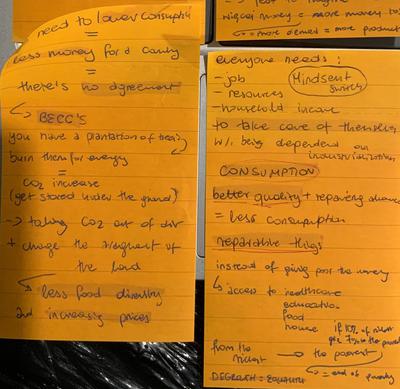 need to lower consumption
=
less money for a county
=
there's no agreement
↳ BECC's
you have a plantation of trees
burn them for energy
=
CO2 increase
(get stored under the ground)
→ taking CO2 out of air
+ change the of
the land
↳ less food diversity
and increasing prices
→ to imagine
money = more money to
↳ = more demand = more product
everyone needs:
- job
- resources
- household income
Mindsent
switch
to take care of themselves
w/. being dependent on
industrialization
CONSUMPTION
better quality + repairing
= less consumption
reparable things
instead of giving poor the money
↳ access to healthcare
education
food
house
if 10% of richest
give to the
from the
richest → the poorest
↳ = end of poverty
DEGROWTH = EQUALITY